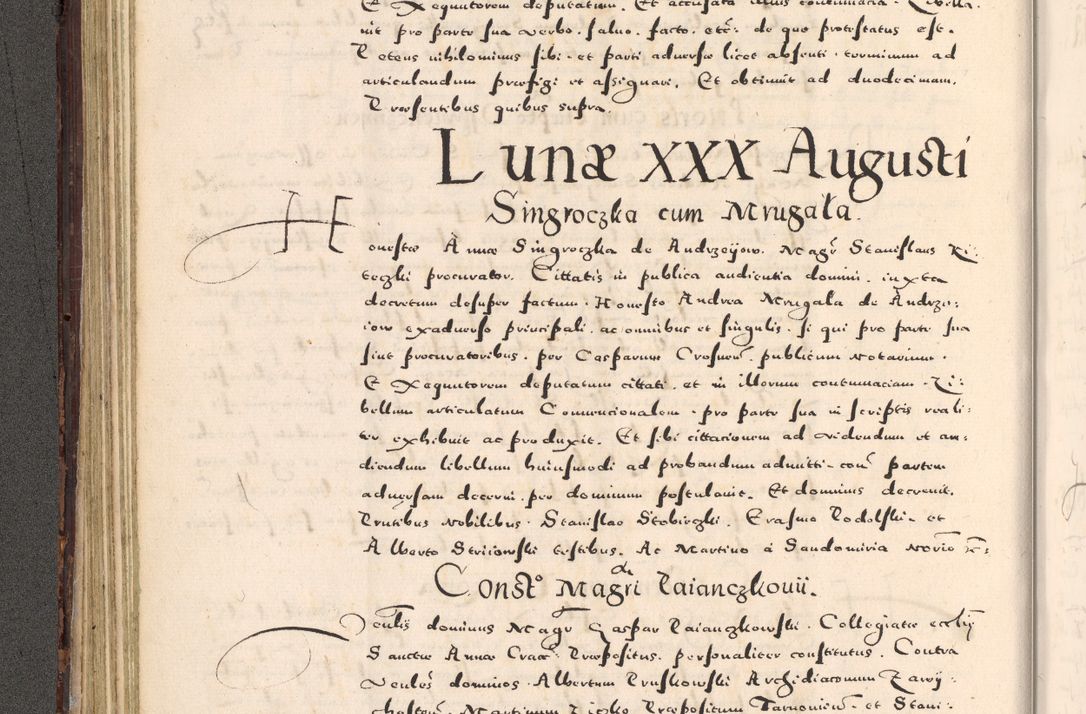 Exequutorem deputatum. Et accusata illius contumacia. Libella
vit pro parte sua verbo. salvo. facto. etc: de quo protestatus est.
Petens nihilominus sibi et parti adversæ licet absenti terminum ad
articulandum præfigi et assignari. Et obtinuit ad duodecimam.
Præsentibus quibus supra
Lunæ XXX Augusti
Singroczka cum Mrugała.
Honestæ Annæ Singroczka de Andrzeÿow. Magr̃ Stanislaus Ri:
teczki procurator. Cittatis in publica audientia domini. iuxta
decretum desuper factum. Honesto Andrea Mrugała de Andrze:
iow exadverso principali. ac omnibus et singulis. si qui pro parte sua
sint procuratoribus. per Casparum Crosnen̄. publicum Notarium.
Exequutorem deputatum cittati. et in illorum contumaciam. Li:
bellum articulatum Convencionalem. pro parte sua in scriptis reali:
ter exhibuit ac produxit. Et sibi cittacionem ad videndum et au:
diendum libellum huiusmodi ad probandum admitti. con̄ partem
adversam decerni. per dominum postulavit. Et dominus decrevit.
Pn̄tibus Nobilibus. Stanislao Stobieczki. Erasmo Podolski. et
Alberto Striiowski testibus. Ac Martino à Sandomiria Norio
Constº Magri de Paianczkovii.
Venlis dominus Magr̃ Gaspar Paianczkowski. Collegiatæ eccliæ
Sanctæ Annæ Crac̄. Præpositus. personaliter constitutus. Contra
Venles dominos. Albertum Pruskowski Archidiaconum Zawij:
chosten̄. Martinum Liczko Præpositum Tarnovien̄. et Stani: